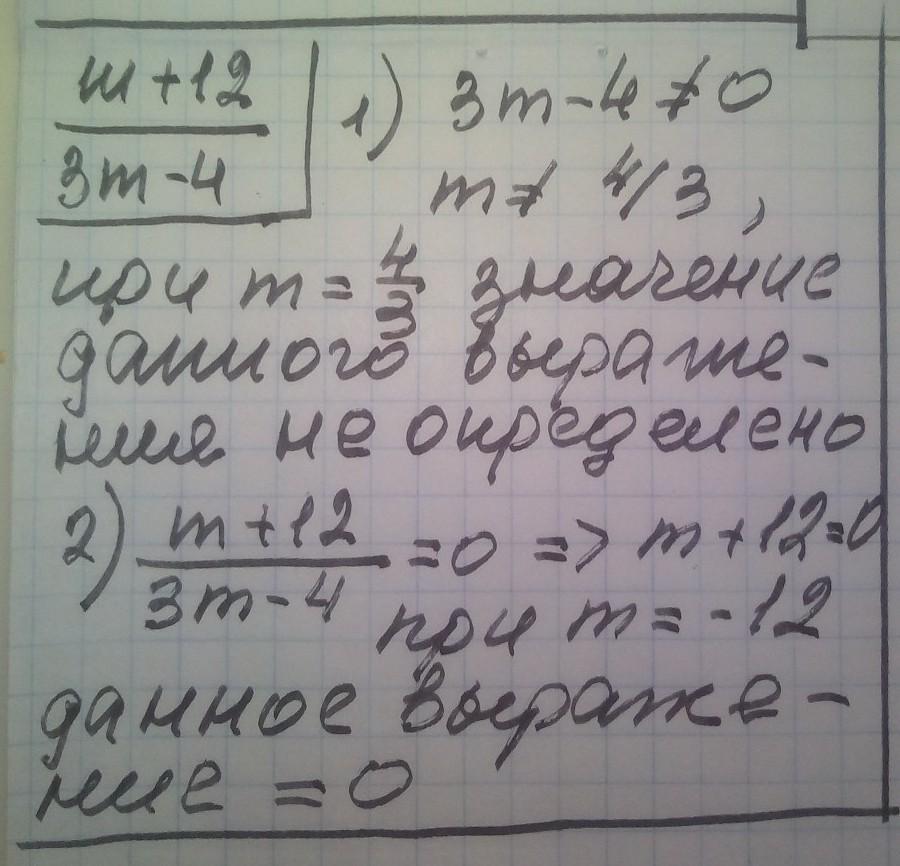 m+12
3m-4
1) 3m-4≠0
m≠ 4/3,
при m = 4/3 значение
данного выраже-
ния не определено
2) m+12
3m-4 =0 => m+12=0
при m = -12
данное выраже-
ние = 0